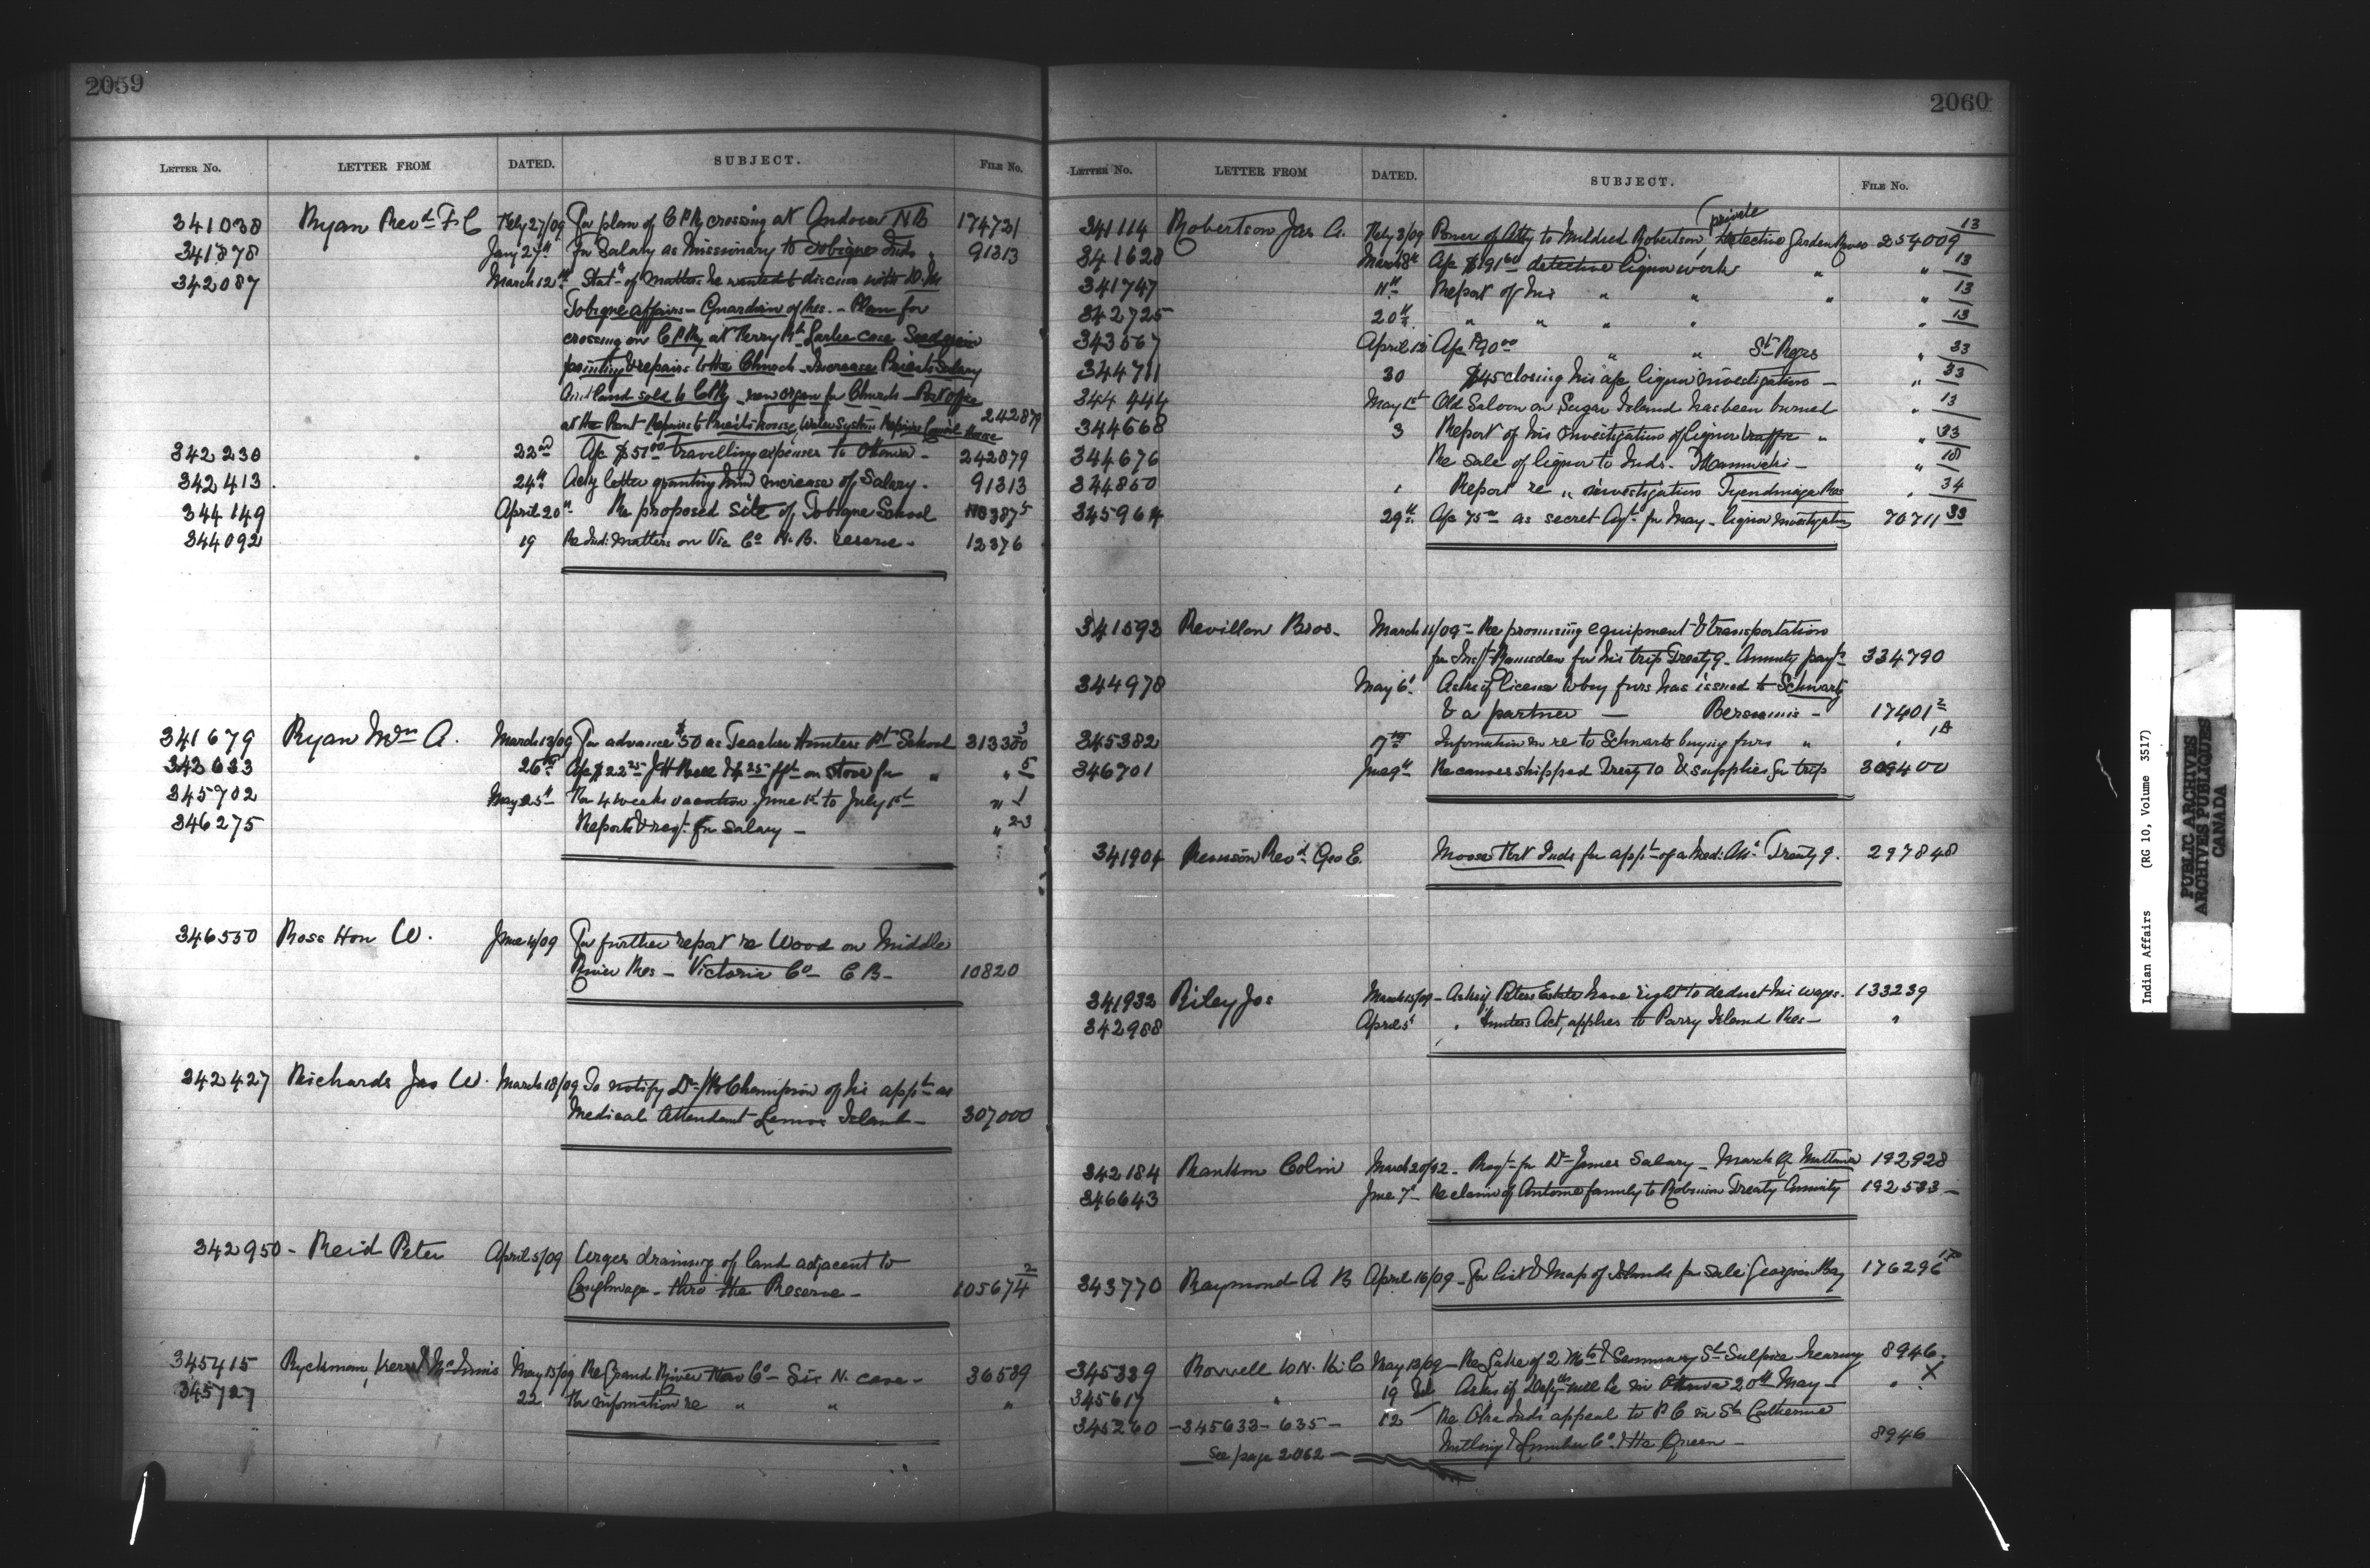 2059
LETTER No. LETTER FROM DATED. SUBJECT. FILE No.
341038 Ryan Revd F. C Feby 27/09 For plan of C P Ry crossing at Andover N B 174721
341878 Jany 27th For Salary as Missionary to Tobique Inds " 91313
342087 March 12th Stat- of matters he wanted to discuss with D. M
Tobique affairs - Guardian of Res. - Plan for
crossing on C P Ry at Perry Pt Larlee case Seed grain
painting & repairs to the Church - Increase Priests Salary
Ind land sold to C P Ry - new organ for Church - Post office
at the Point - Repairs to Priests house, Water System Repairs Council House 242879
342230 22nd A/c $51.00 travelling expenses to Ottawa - 242879
342413. 24th Ackg letter granting him increase of Salary. 91313
344149 April 20th Re proposed site of Tobique School 5
344092 19 Re Ind: matters on Vic Co N. B. reserve - 12376
341679 Ryan Wm A. March 13/09 For advance $50 as Teacher Hunters Pt School 313300 3
342633 26th A/c $22.25 J H Bell & $ 25 frt on stove for " " 5
345702 May 25th For 4 weeks vacation June 1st to July 1st " 1
346275 Reports & reqt for salary - " 2-3
346550 Ross Hon W. June 4/09 For further report re Wood on Middle
River Res - Victoria Co - C B - 10820
342427 Richards Jas W. March 18/09 To notify Dr Champion of his appt as
Medical Attendant Lennox Island - 307000
342950 - Reid Peter April 5/09 Urges draining of land adjacent to
Caughnwaga - thro the Reserve - 105674 2
345415 Ryckman, Kerr & McInnis May 15/09 Re Grand River Nav Co - Six N. case - 36589
345727 22 For information re " " "
2060
LETTER No. LETTER FROM DATED. SUBJECT. FILE No.
341114 Robertson Jas A. Feby 3/09 Power of Atty to Mildred Robertson, (private Detective Garden River 254009 13
341628 March 8th A/c $191.60 detective liquor work " " 13
341747 11th Report of his " " " " 13
342725 20th " " " " " 13
343567 April 12 A/c $90.00 " " St Regis " 33
344711 30 $45 closing his a/c liquor investigation - " 33
344444 May 1st Old Saloon on Sugar Island has been burned " 13
344668 3 Report of his investigation of liquor traffic " " 33
344676 Re sale of liquor to Inds. Maniwaki - " 18
344850 " Report re " investigation Tyendinaga Res " 34
345964 29th A/c 75.00 as secret Agt for May - liquor investigation 70711 33
341593 Revillon Bros. March 11/09 - Re promising equipment & transportation
for Inspt Ramsden for his trip Treaty 9 - Annuity payts 334790
344978 May 6th Asks if license to buy furs has issued to Schwartz
& a partner - Bersimis - 17401 2
345382 17th Information in re to Schwartz buying furs " "
346701 June 9th Re canoes shipped Treaty 10 & supplies for trip 309400
341904 Renison Revd Geo E. Moose Fort Inds for appt of a Med: Att Treaty 9. 297848
341932 Riley Jos March 15/09 - Asks if Peters Estate have right to deduct his wages. 133239
342988 April 5th " Hunters Act, applies to Parry Island Res - "
342184 Rankin Colin March 20/02 - Reqt for Dr James Salary - March Q. Mattawa 192928
346643 June 7th Re claim of Antoine family to Robinson Treaty Annuity 192533 -
343770 Raymond A B April 16/09 - For list & Map of Islands for sale Georgian Bay 176296
345339 Boxwell W. N. K. C May 13/09 - Re Lake of 2 Mts & Seminary St Sulpice hearing 8946.
345617 " 19 Asks if will be in Ottawa 20th May - " X
345260 - 345633 - 635 - 12 Re Oka Inds appeal to P C in St Catherine
Milling & Lumber Co. & the Queen - 8946
See page 2062 -
Indian Affairs (RG 10, Volume 3517)
PUBLIC ARCHIVES
ARCHIVES PUBLIQUES
CANADA